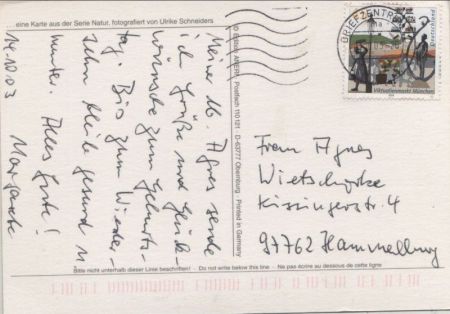 eine Karte aus der Serie Natur, fotografiert von Ulrike Schneiders
14.10.03
Meine lb. Agnes sende
ich Grüße und Glück-
wünsche zum Geburts-
tag. Bis zum Wieder-
sehn bleibe gesund u.
munter. Alles Gute!
Margarete
Postfach 110121 · D-63777 Obernburg · Printed in Germany
BRIEFZENTRUM
Viktualienmarkt München
Frau Agnes
Kissingerstr. 4
97762 Hammelburg
Bitte nicht unterhalb dieser Linie beschriften! · Do not write below this line · Ne pas écrire au dessous de cette ligne